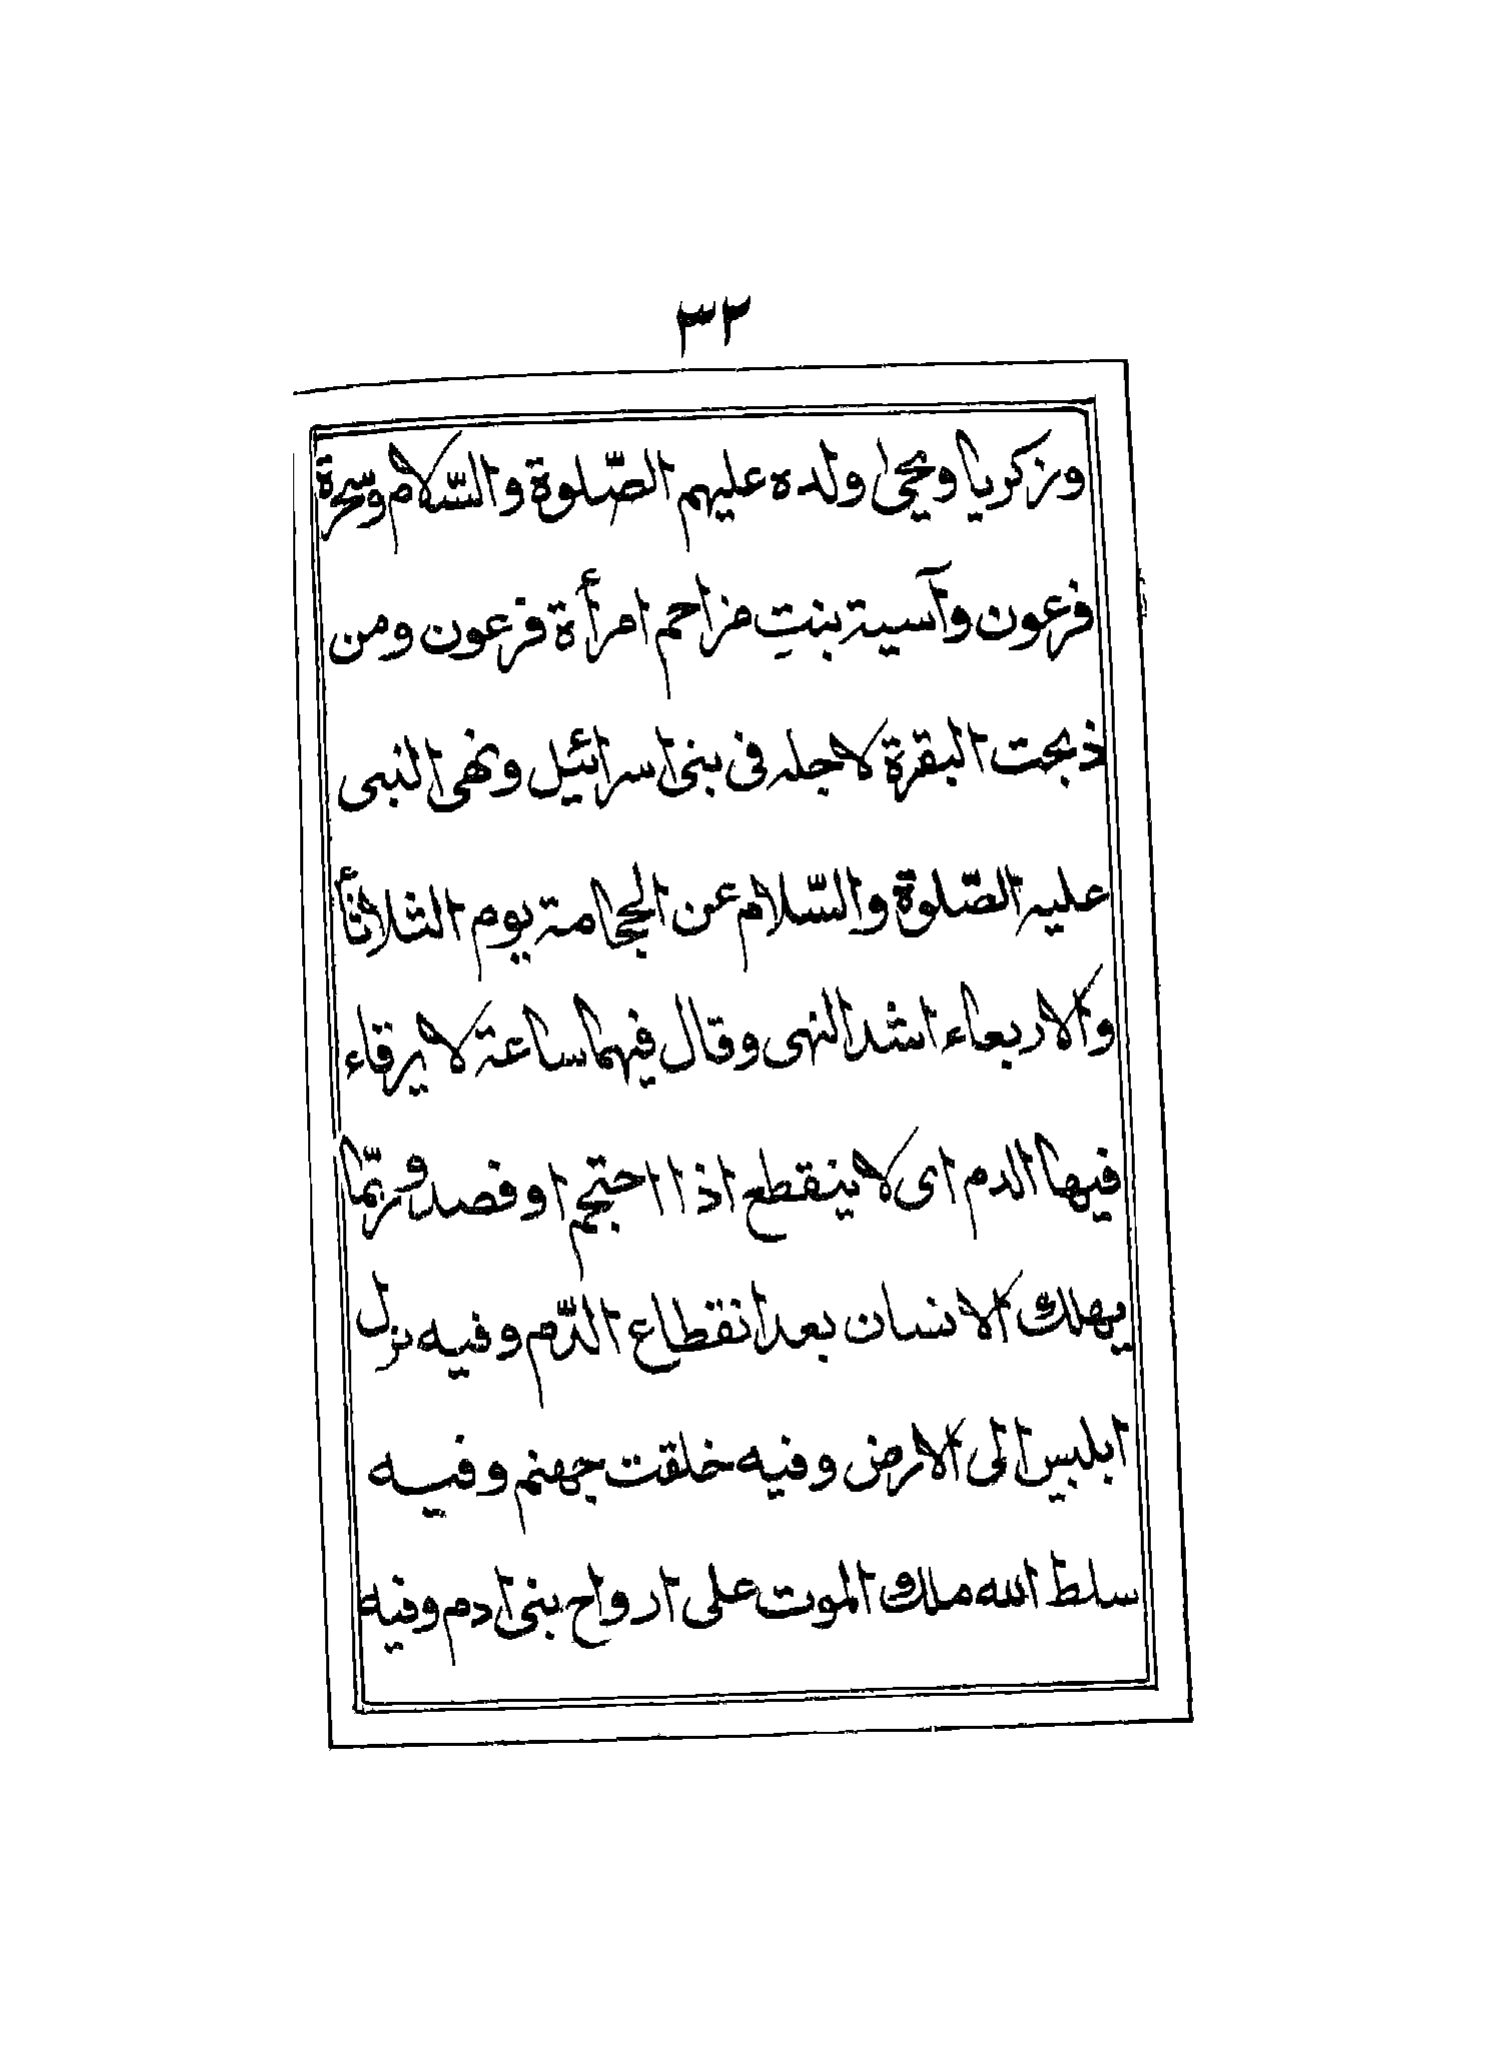 ٣٢
وزكريا ويحيى ولده عليهم الصّلوة والسّلام وسحرة
فرعون وآسية بنتِ مزاحم امرأة فرعون ومن
ذبحت البقرة لاجله فى بنى اسرائيل ونهى النبى
عليه الصّلوة والسّلام عن الحجامة يوم الثلاثأ
والاربعاء اشد النهى وقال فيهما ساعة لا يرقاء
فيها الدم اى لا ينقطع اذا احتجم او فصد وربّما
يهلك الانسان بعد انقطاع الدّم وفيه نزل
ابليس الى الارض وفيه خلقت جهنم وفيه
سلط الله ملك الموت على ارواح بنى ادم وفيه